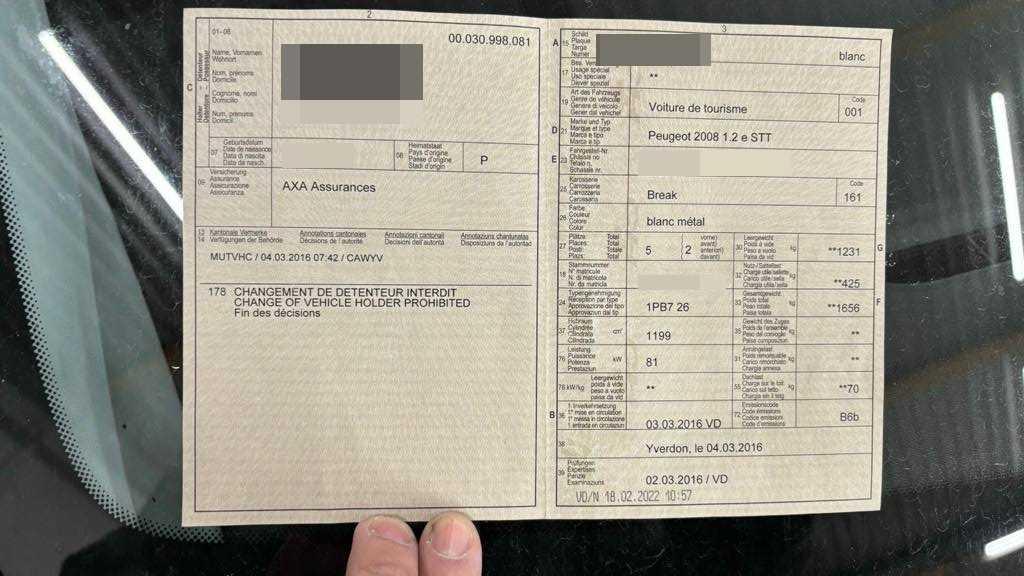 2
01-06
00.030.998.081
Name, Vornamen
Wohnort
Nom, prénoms
Domicile
Cognome, nomi
Domicilio
Num, prenoms
Domicil
C
Halter - Détenteur
Detentore - Possessur
07
Geburtsdatum
Date de naissance
Data di nascita
Data da nasch.
08
Heimatstaat
Pays d'origine
Paese d'origine
Stadi d'origin
P
09
Versicherung
Assurance
Assicurazione
Assicuranza
AXA Assurances
13 Kantonale Vermerke Annotations cantonales Annotazioni cantonali Annotaziuns chantunalas
14 Verfügungen der Behörde Décisions de l'autorité Decisioni dell'autorità Disposiziuns da l'autoritad
MUTVHC / 04.03.2016 07:42 / CAWYV
178 CHANGEMENT DE DETENTEUR INTERDIT
CHANGE OF VEHICLE HOLDER PROHIBITED
Fin des décisions
3
A 15
Schild
Plaque
Targa
Numer
blanc
17
Usage spécial
Uso speciale
Diever spezial
**
19
Art des Fahrzeugs
Genre de véhicule
Genere di veicolo
Gener dal vehichel
Voiture de tourisme
Code
001
D 21
Marke und Typ
Marque et type
Marca e tipo
Marca e tip
Peugeot 2008 1.2 e STT
E 23
Fahrgestell-Nr.
Châssis no
Telaio n.
Schassis nr.
25
Karosserie
Carrosserie
Carrozzeria
Carossaria
Break
Code
161
26
Farbe
Couleur
Colore
Colur
blanc métal
27
Plätze: Total
Places: Total
Posti: Totale
Plazs: Total
5
vorne)
avant)
anteriori)
davant)
(2
30
Leergewicht
Poids à vide
Peso a vuoto
Paisa da vid
kg
**1231
G
18
Stammnummer
N° matricule
N. di matricola
Nr. da matricla
32
Nutz-/Sattellast
Charge utile/sellette
Carico utile/sella
Chargia utila/sella
kg
**425
24
Typengenehmigung
Réception par type
Approvazione del tipo
Approvaziun dal tip
1PB7 26
33
Gesamtgewicht
Poids total
Peso totale
Paisa totala
kg
**1656
F
37
Hubraum
Cylindrée
Cilindrata
Cilindrada
cm³
1199
35
Gewicht des Zuges
Poids de l'ensemble
Peso del convoglio
Paisa cumposiziun
kg
**
76
Leistung
Puissance
Potenza
Prestaziun
kW
81
31
Anhängelast
Poids remorquable
Carico rimorchiato
Chargia annexa
kg
**
78 kW/kg
Leergewicht
poids à vide
peso a vuoto
paisa da vid
**
55
Dachlast
Charge sur le toit
Carico sul tetto
Chargia sin il tetg
kg
**70
B 36
1. Inverkehrsetzung
1re mise en circulation
1a messa in circolazione
1. entrada en circulaziun
03.03.2016 VD
72
Emissionscode
Code émissions
Codice emissioni
Code d'emissiuns
B6b
38
Yverdon, le 04.03.2016
39
Prüfungen
Expertises
Perizie
Examinaziuns
02.03.2016 / VD
VD/N 18.02.2022 10:57